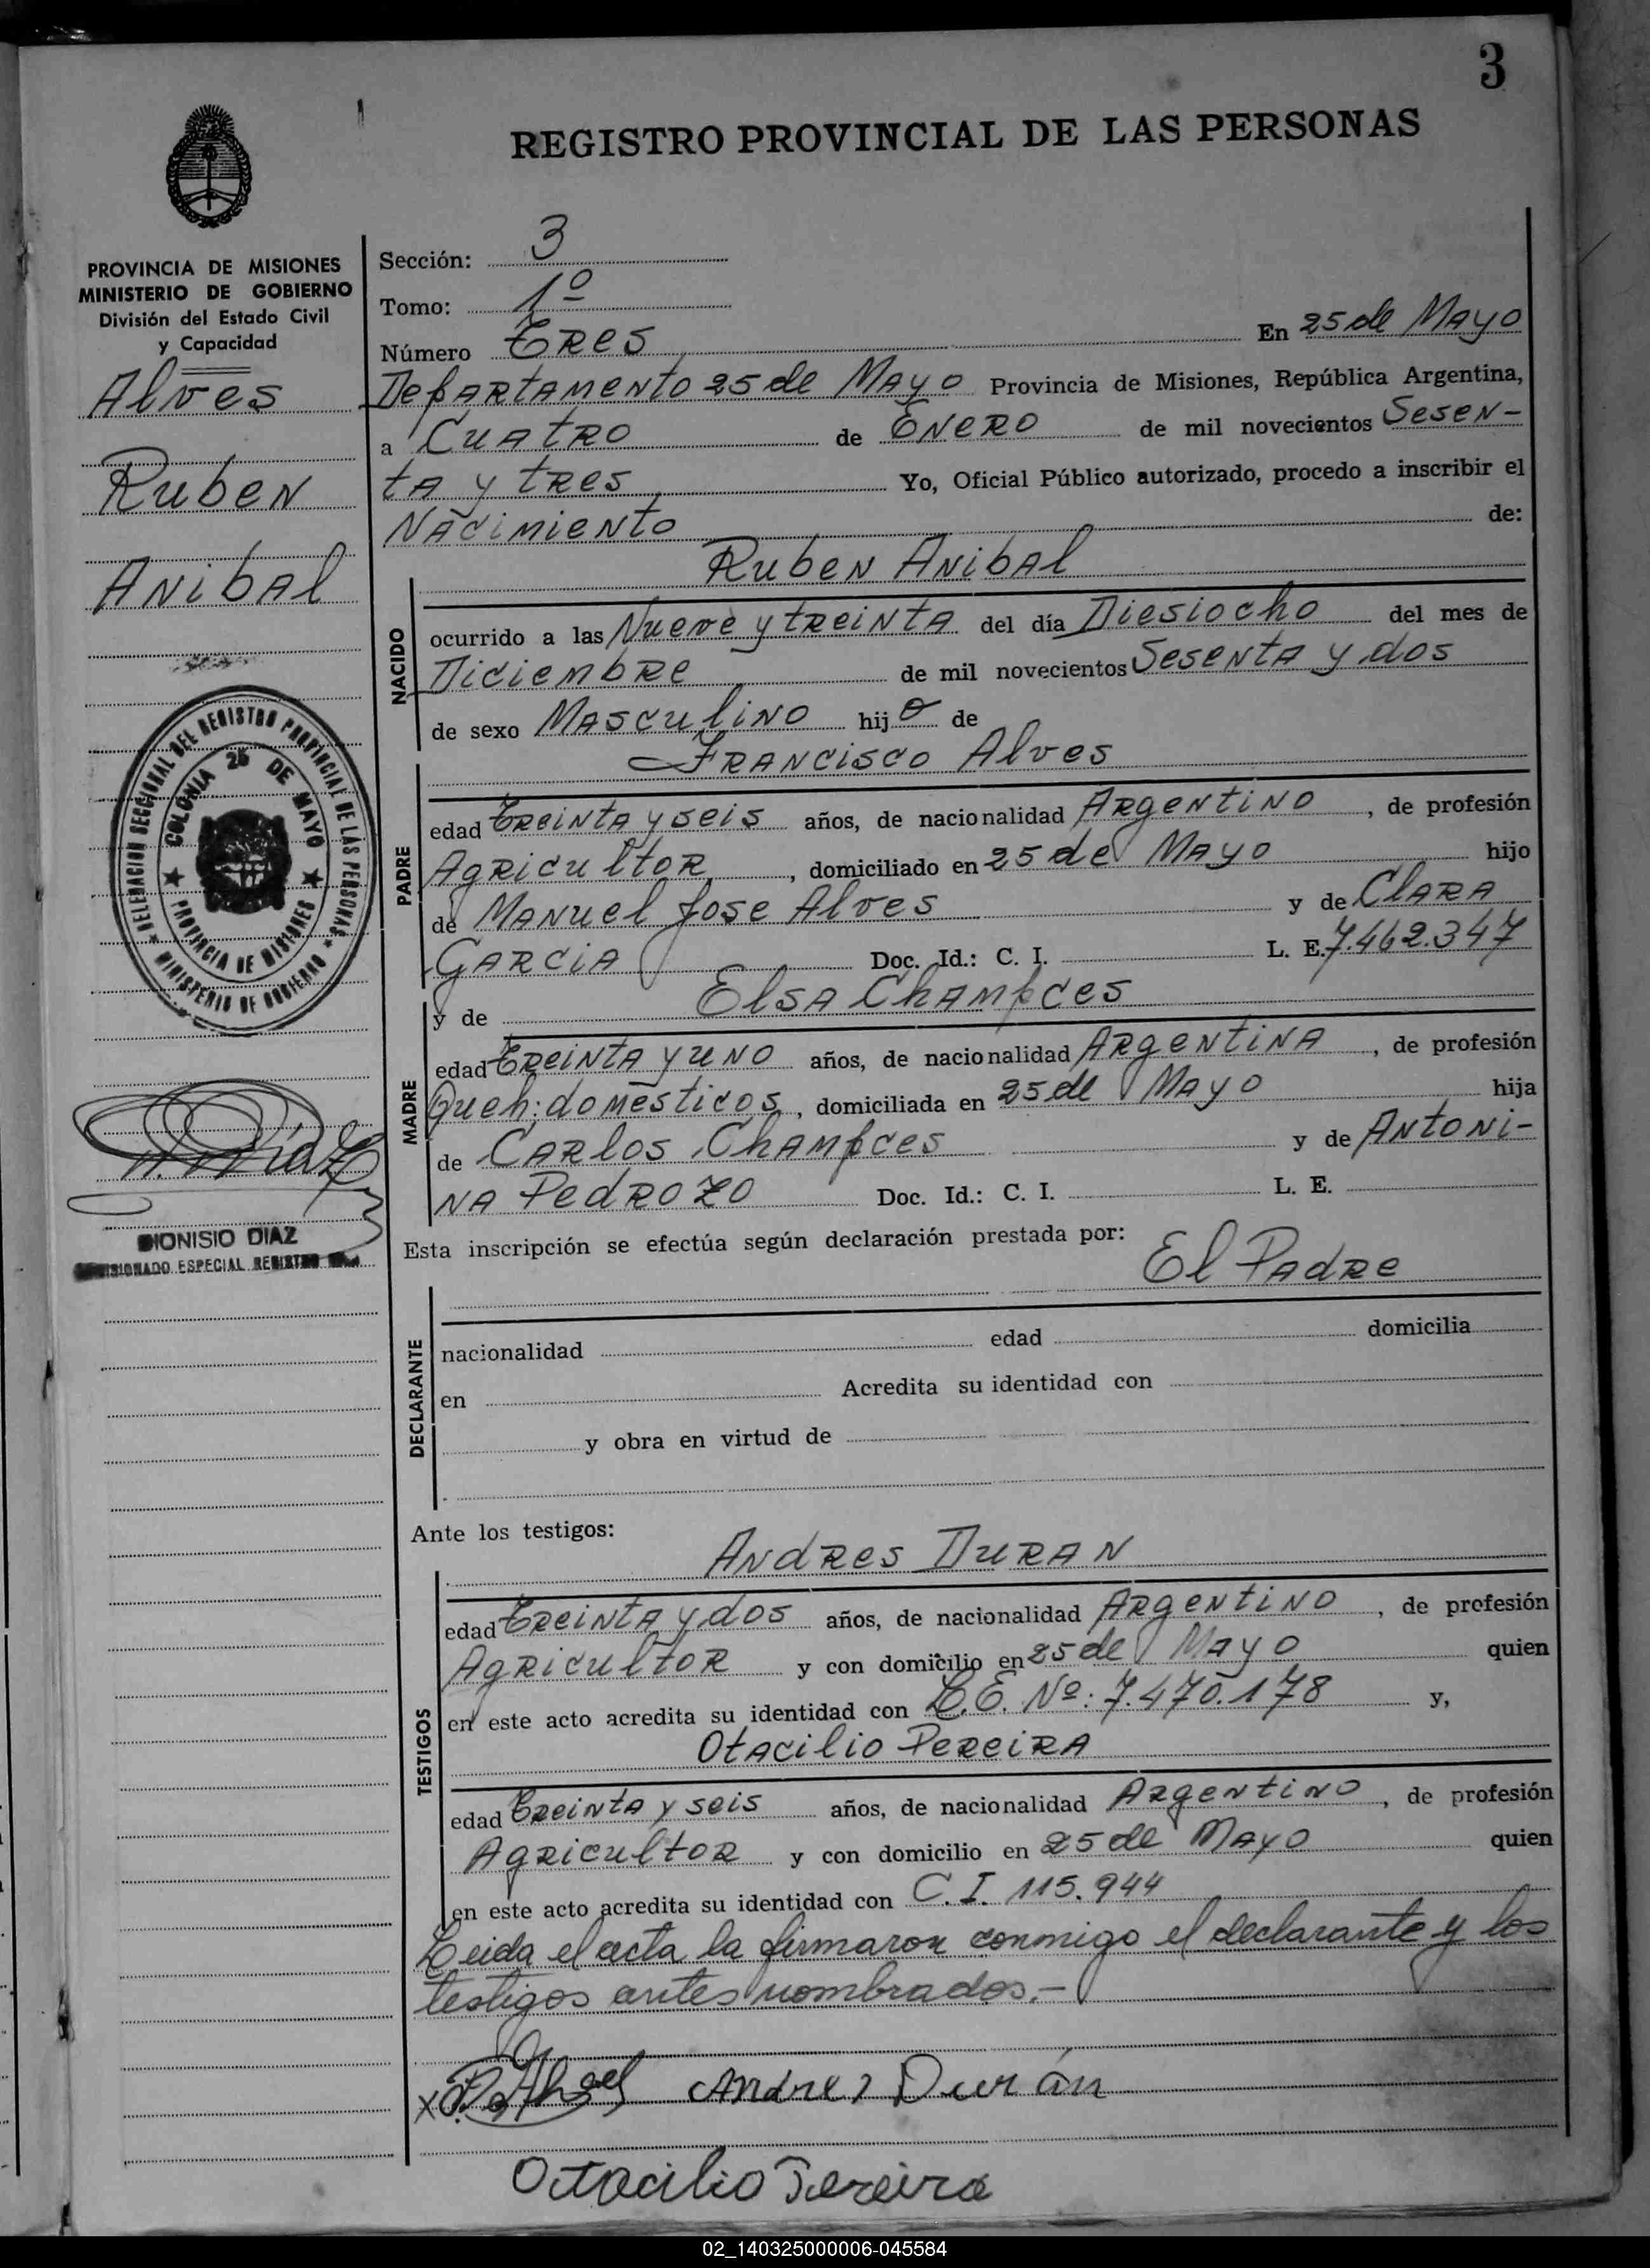 3
REGISTRO PROVINCIAL DE LAS PERSONAS
PROVINCIA DE MISIONES
MINISTERIO DE GOBIERNO
División del Estado Civil
y Capacidad
Alves
Ruben
Anibal
DELEGACION SECCIONAL DEL REGISTRO PROVINCIAL DE LAS PERSONAS
MINISTERIO DE GOBIERNO
COLONIA 25 DE MAYO
PROVINCIA DE MISIONES
D. Díaz
DIONISIO DIAZ
COMISIONADO ESPECIAL REGISTRO
Sección: 3
Tomo: 1º
Número Tres En 25 de Mayo
Departamento 25 de Mayo Provincia de Misiones, República Argentina,
a Cuatro de Enero de mil novecientos Sesen-
ta y tres Yo, Oficial Público autorizado, procedo a inscribir el
Nacimiento de:
Ruben Anibal
NACIDO
ocurrido a las Nueve y treinta del día Diesiocho del mes de
Diciembre de mil novecientos Sesenta y dos
de sexo Masculino hijo de
Francisco Alves
PADRE
edad Treinta y seis años, de nacionalidad Argentino, de profesión
Agricultor, domiciliado en 25 de Mayo hijo
de Manuel Jose Alves y de Clara
Garcia Doc. Id.: C. I. L. E. 7.462.347
y de Elsa Champces
MADRE
edad Treinta y uno años, de nacionalidad Argentina, de profesión
Queh: domésticos, domiciliada en 25 de Mayo hija
de Carlos Champces y de Antoni-
na Pedrozo Doc. Id.: C. I. L. E.
Esta inscripción se efectúa según declaración prestada por:
El Padre
DECLARANTE
nacionalidad edad domicilia
en Acredita su identidad con
y obra en virtud de
Ante los testigos:
Andres Duran
TESTIGOS
edad Treinta y dos años, de nacionalidad Argentino, de profesión
Agricultor y con domicilio en 25 de Mayo quien
en este acto acredita su identidad con L.E. Nº: 7.470.178 y,
Otacilio Pereira
edad Treinta y seis años, de nacionalidad Argentino, de profesión
Agricultor y con domicilio en 25 de Mayo quien
en este acto acredita su identidad con C.I. 115.944
Leida el acta la firmaron conmigo el declarante y los
testigos antes nombrados.-
Andres Durán
Otacilio Pereira
02_140325000006-045584